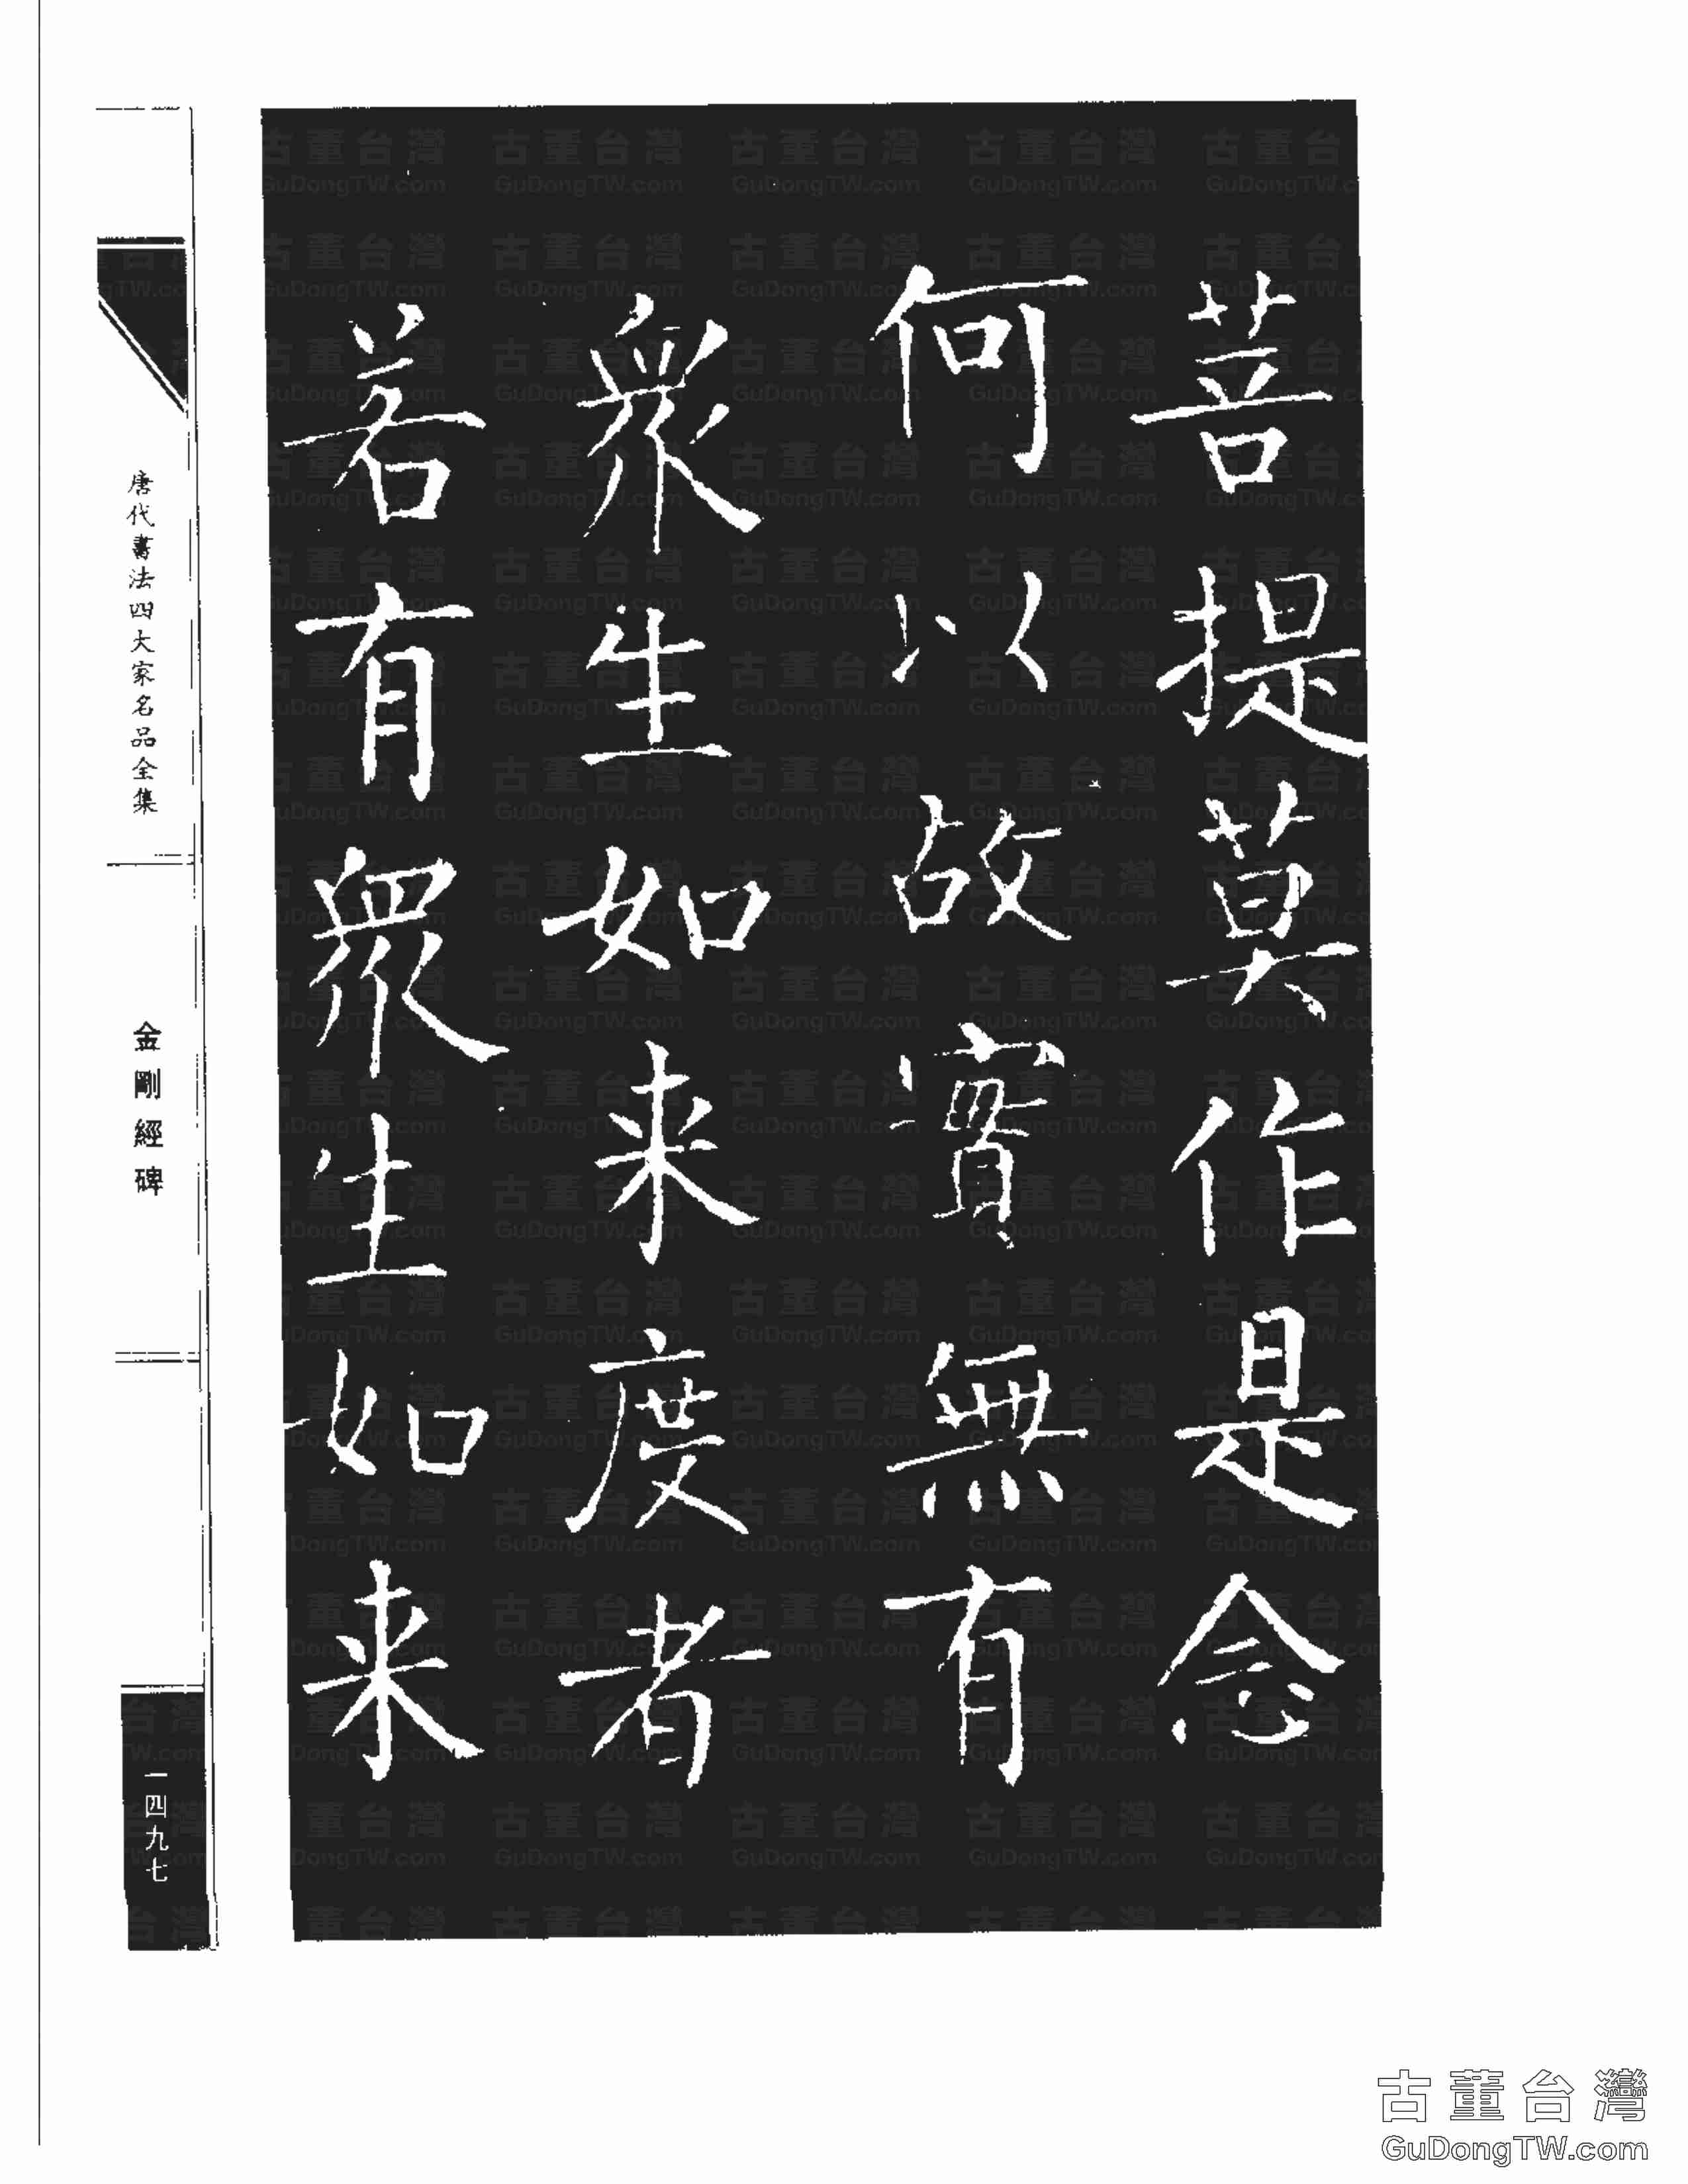 菩提莫作是念
何以故實無有
衆生如来度者
若有衆生如来
唐代書法四大家名品全集
金剛經碑
一四九七
古董台灣
GuDongTW.com